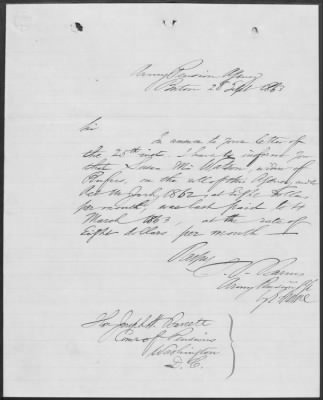 Army Pension Agency
Boston 28 Sept 1863
Sir
In answer to your letter of
the 25th inst. I have to inform you
that Susan Watson, widow of
on the roll of this Agency,
1862 at Eight Dollars
per month, was last paid to 4
March 1863, at the rate of
Eight dollars per month
Army Pension Agt
Hon Joseph H. Barrett
Comr of Pensions
Washington
D.C.